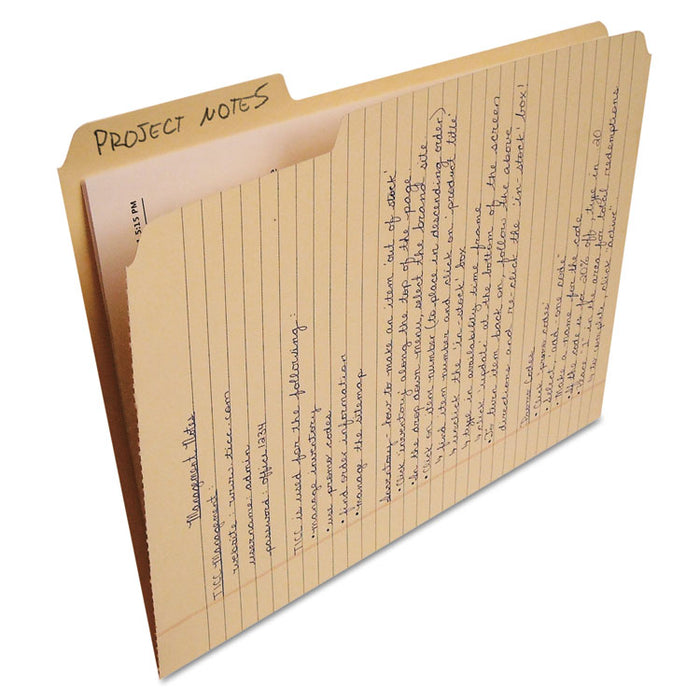 PROJECT NOTES
5:15 PM
Management Notes
TICC Management:
website: www.ticc.com
username: admin
password: office1234
TICC is used for the following:
• manage inventory
• use promo codes
• find order information
• manage the sitemap
Inventory - how to make an item 'out of stock'
• Click 'inventory' along the top of the page
• In the drop down menu, select the brand site
• Click on item number (to place in descending order)
↳ find item number and click on 'product title'
↳ unclick the 'in-stock' box
↳ type in availability time frame
↳ click 'update' at the bottom of the screen
• To turn item back on, follow the above
directions and re-click the 'in stock' box!
Promo Codes
• Click 'promo codes'
• Select, 'add one code'
• Make a name for the code
• If the code is for 20% off, type in 20
• Place '1' in the area for total redemptions
↳ to complete, click 'active'